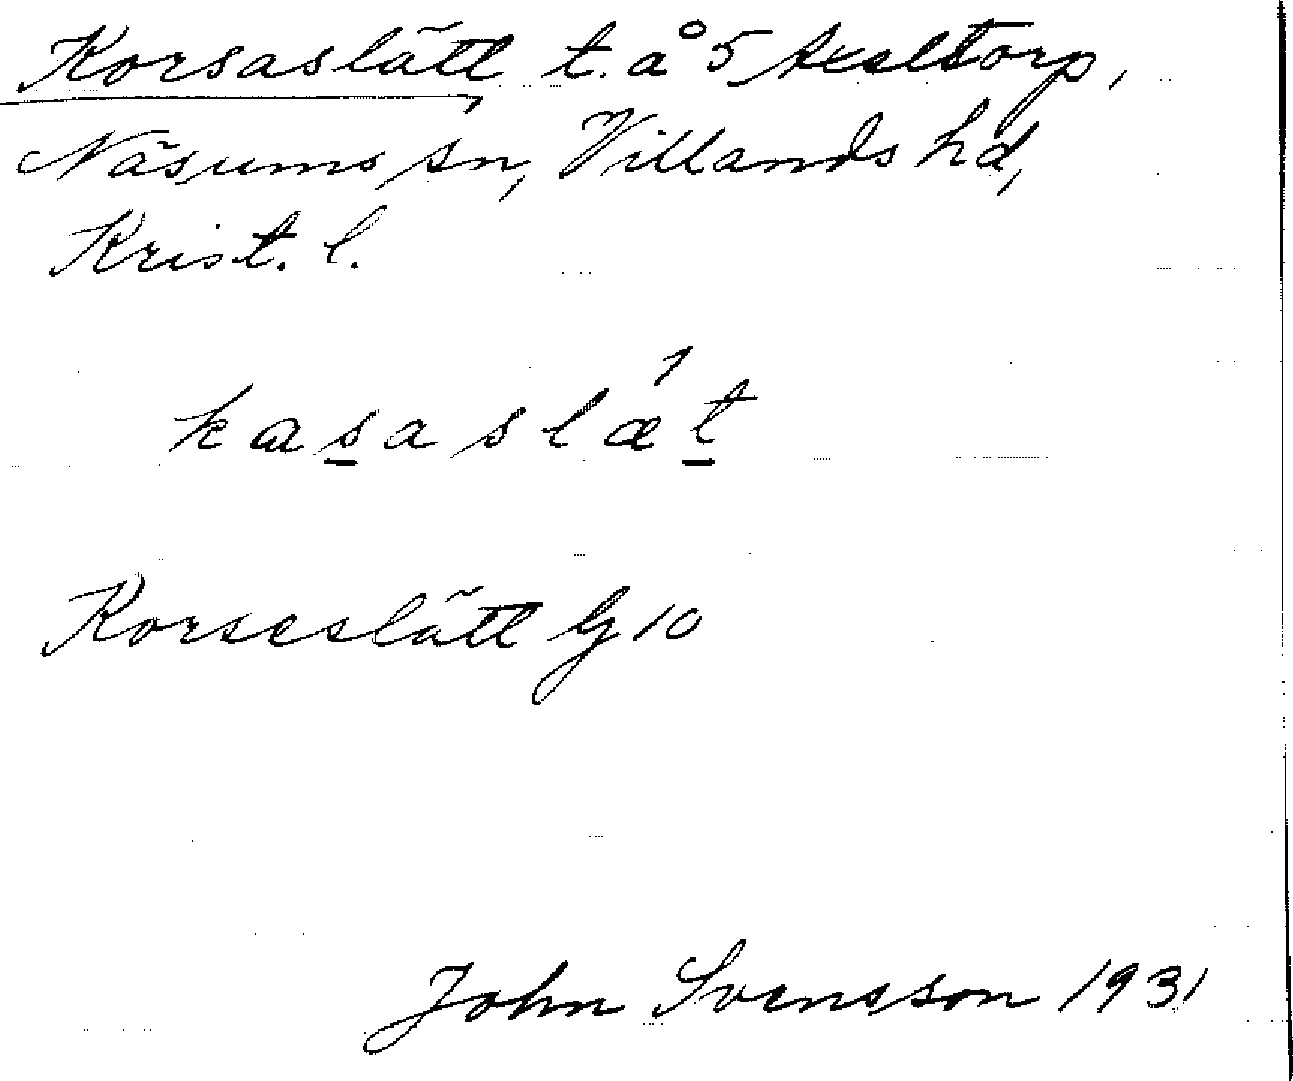 Korsaslätt t. å 5 Axeltorp,
Näsums sn, Villands hd,
Krist. l.
kasaslǽt
Korseslätt G 10
John Svensson 1931